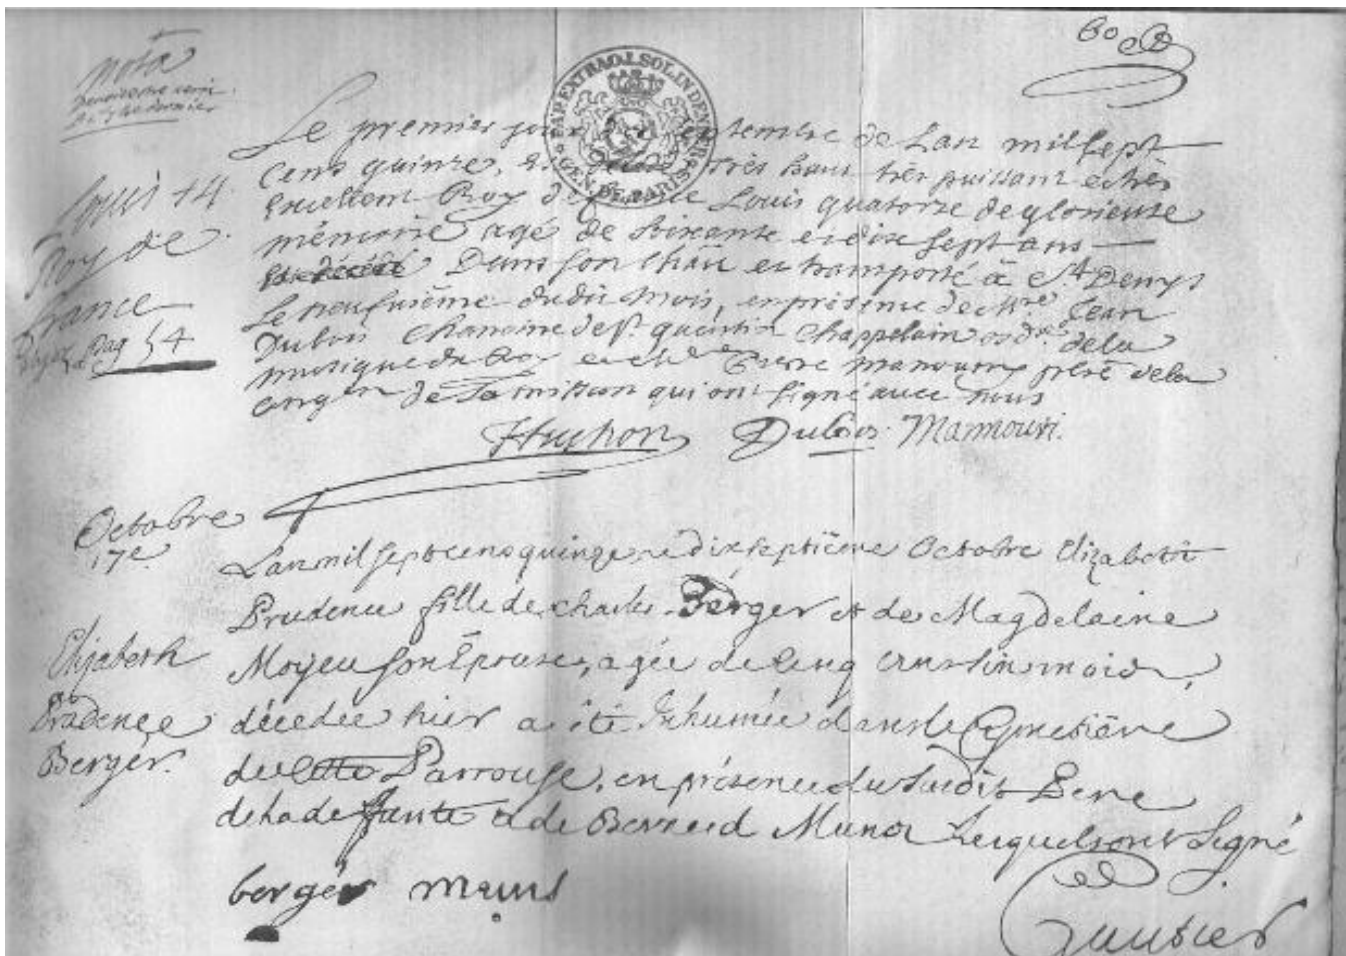 60
nota
GEN. DE PARIS
Le premier jour de Septembre de Lan mil Sept
Cens quinze, est très haut très puissant et très
Excellent Roy de france Louis quatorze de glorieuse
mémoire agé de Soixante et dix Sept ans
Dans Son chãu et transporté à St. Denys
Le neufvième dudit Mois, en présence de Mre. Jean
Dubois Chanoine de St. quentin Chappelain ordre. de la
musique du Roy et de Mre Pierre manoury ptre de la
congon de La mission qui ont Signé avec nous
Louis 14
Roy de
France
Pag 54
Huchon Dubois Mannouri.
Octobre
17e
Lan mil sept cens quinze le dix septième Octobre Elizabeth
Prudence fille de charles Berger et de Magdelaine
Moyeu son Epouse, agée de cinq ans cinq mois,
Elizabeth
Prudence
Berger.
décedée hier a été Inhumée dans le Cymetiere
de cette Parroisse, en présence du Susdit Pere
de la deffunte et de Bernard Lesquels ont Signé
berger
Gautier